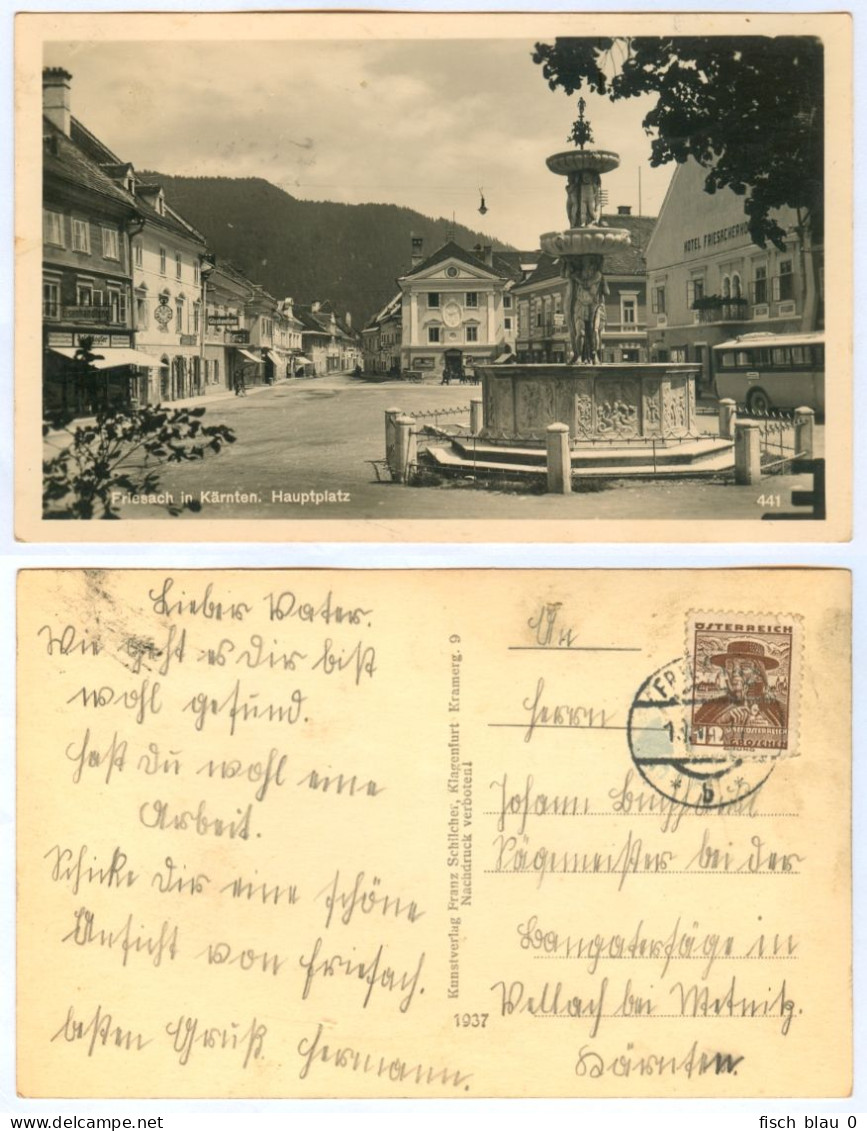 HOTEL FRIESACHERHOF
Friesach in Kärnten. Hauptplatz
441
Lieber Vater.
Wie geht es Dir bist
wohl gesund.
Hast Du wohl eine
Arbeit.
Schicke Dir eine schöne
Ansicht von Friesach.
besten Gruß Hermann.
Kunstverlag Franz Schilcher, Klagenfurt Kramerg. 9
Nachdruck verboten!
1937
ÖSTERREICH
GROSCHEN
* b *
An
Herrn
Johann
Sägemeister bei der
in
Vellach bei Metnitz.
Kärnten.
fisch blau 0